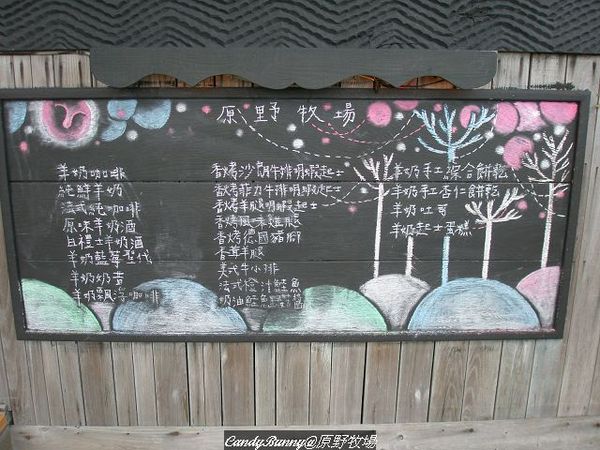 原野牧場
羊奶咖啡
純鮮羊奶
法式純咖啡
原味羊奶酒
日禮士羊奶酒
羊奶藍莓聖代
羊奶奶昔
羊奶飄浮咖啡
香烤沙朗牛排明蝦起士
香烤菲力牛排明蝦起士
香烤羊腿明蝦起士
香烤風味雞腿
香烤德國豬腳
香草羊腿
美式牛小排
法式橙汁鮭魚
奶油鮭魚
羊奶手工綜合餅乾
羊奶手工杏仁餅乾
羊奶吐司
羊奶起士蛋糕
CandyBunny@原野牧場